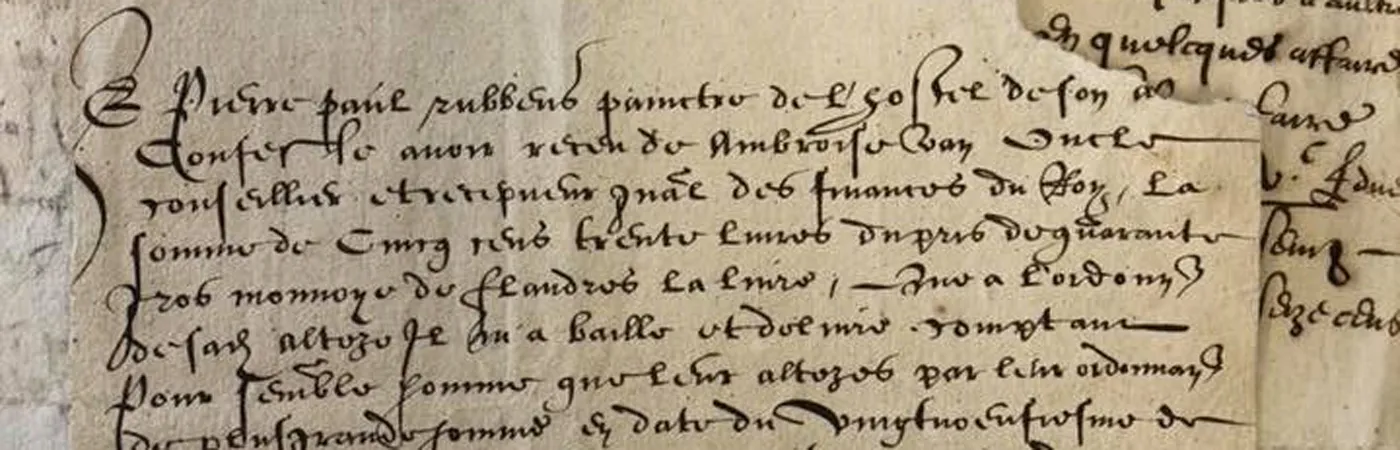 en quelcques affaires
Je Pierre paul rubbens painctre de l'hostel de son alt
Confesse avoir receu de Ambroise van Oncle
conseillier et recepveur gnal des finances du Roy, La
somme de Cincq cens trente livres du pris de quarante
gros monnoye de flandres la livre, Que a l'ordonn
de sad alteze Il m'a baille et delivre comptant
Pour semble somme que leurs altezes par leur ordonnan
de plus grande somme en date du vingtneufiesme de
seize cens